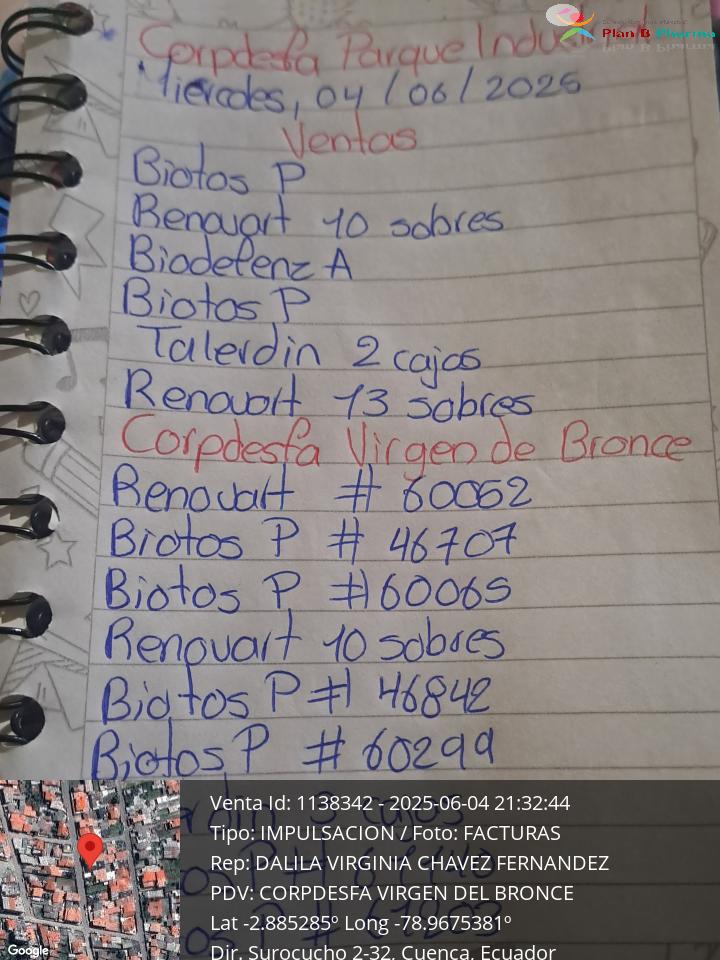 Plan B Pharma
Corpdesfa Parque Indu
Miercoles, 04/06/2025
Ventas
Biotos P
Renovart 10 sobres
Biodefenz A
Biotos P
Talerdin 2 cajas
Renovart 13 sobres
Corpdesfa Virgen de Bronce
Renovart # 60052
Biotos P # 46707
Biotos P # 60065
Renovart 10 sobres
Biotos P # 46842
Biotos P # 60299
Venta Id: 1138342 - 2025-06-04 21:32:44
Tipo: IMPULSACION / Foto: FACTURAS
Rep: DALILA VIRGINIA CHAVEZ FERNANDEZ
PDV: CORPDESFA VIRGEN DEL BRONCE
Lat -2.885285º Long -78.9675381º
Dir. Surocucho 2-32, Cuenca, Ecuador
Google